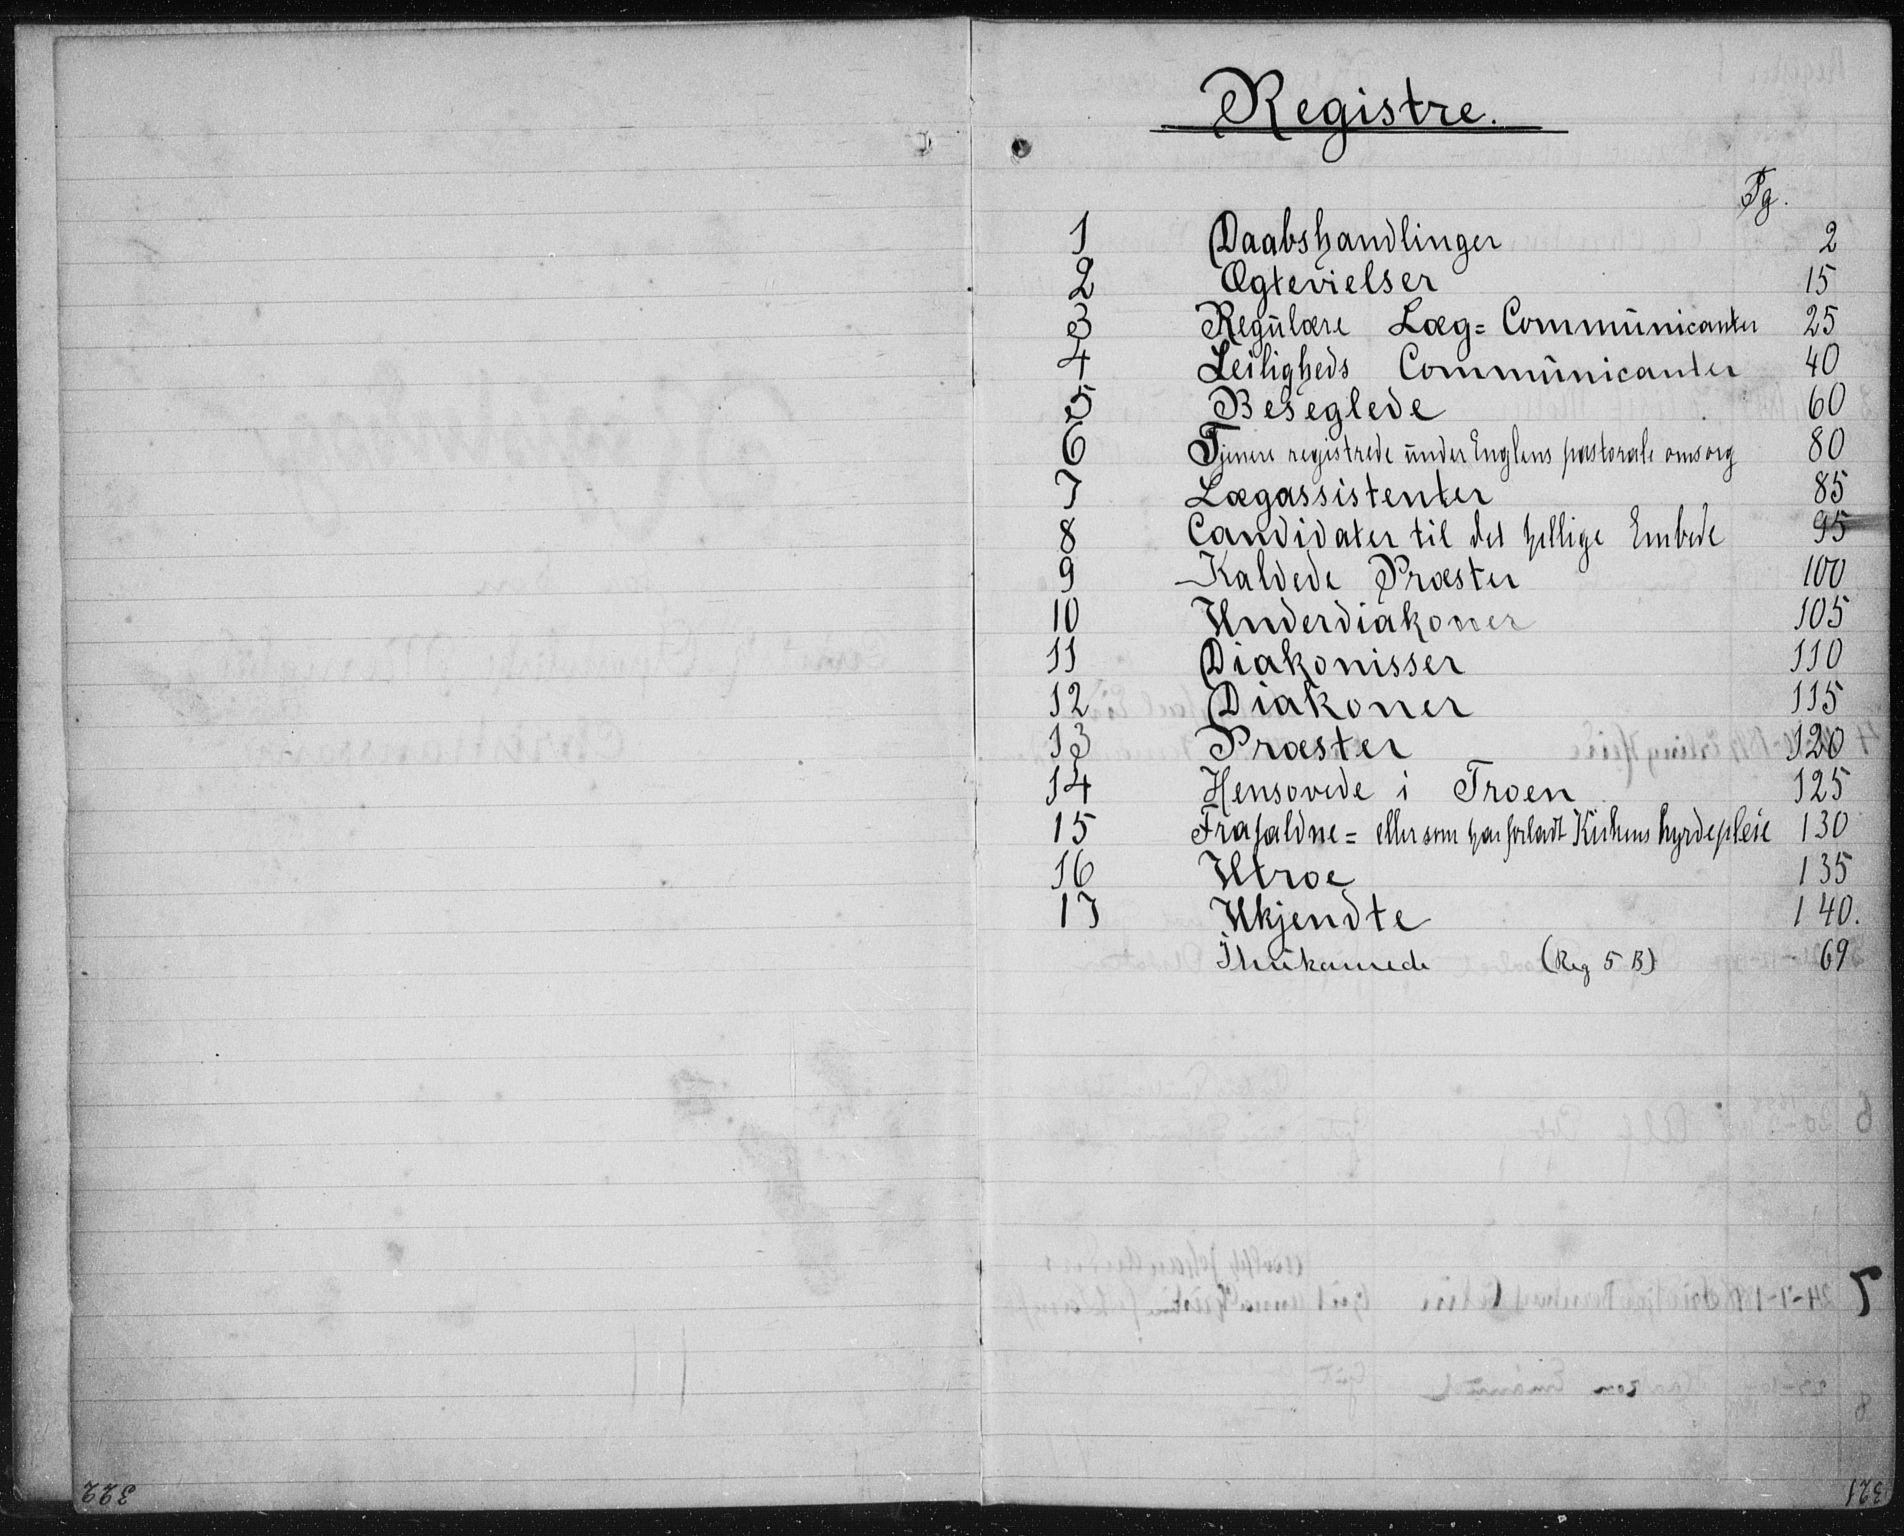 Registre.
Pg.
1 Daabshandlinger 2
2 Ægtevielser 15
3 Regulære Læg= Communicanter 25
4 Leiligheds Communicanter 40
5 Beseglede 60
6 Tjenere registrede under Englens pastorale omsorg 80
7 Lægassistenter 85
8 Candidater til det hellige Embede 95
9 Kaldede Præster 100
10 Underdiakoner 105
11 Diakonisser 110
12 Diakoner 115
13 Præster 120
14 Hensovede i Troen 125
15 Frafaldne= eller som har forladt Kirkens hyrdepleie 130
16 Utroe 135
17 Ukjendte 140.
(Reg 5 B) 69
322
321